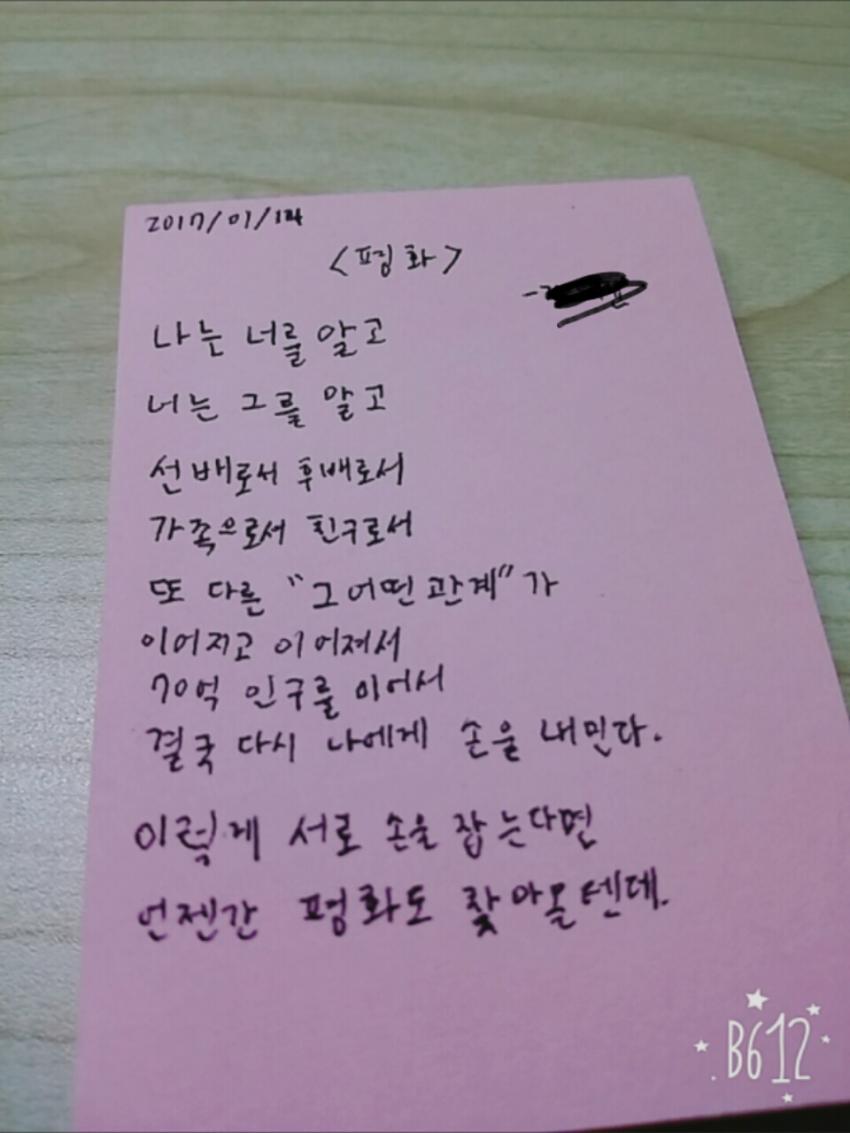 2017/01/14
<평화>
나는 너를 알고
너는 그를 알고
선배로서 후배로서
가족으로서 친구로서
또 다른 "그 어떤 관계"가
이어지고 이어져서
70억 인구를 이어서
결국 다시 나에게 손을 내민다.
이렇게 서로 손을 잡는다면
언젠간 평화도 찾아올텐데.
B612